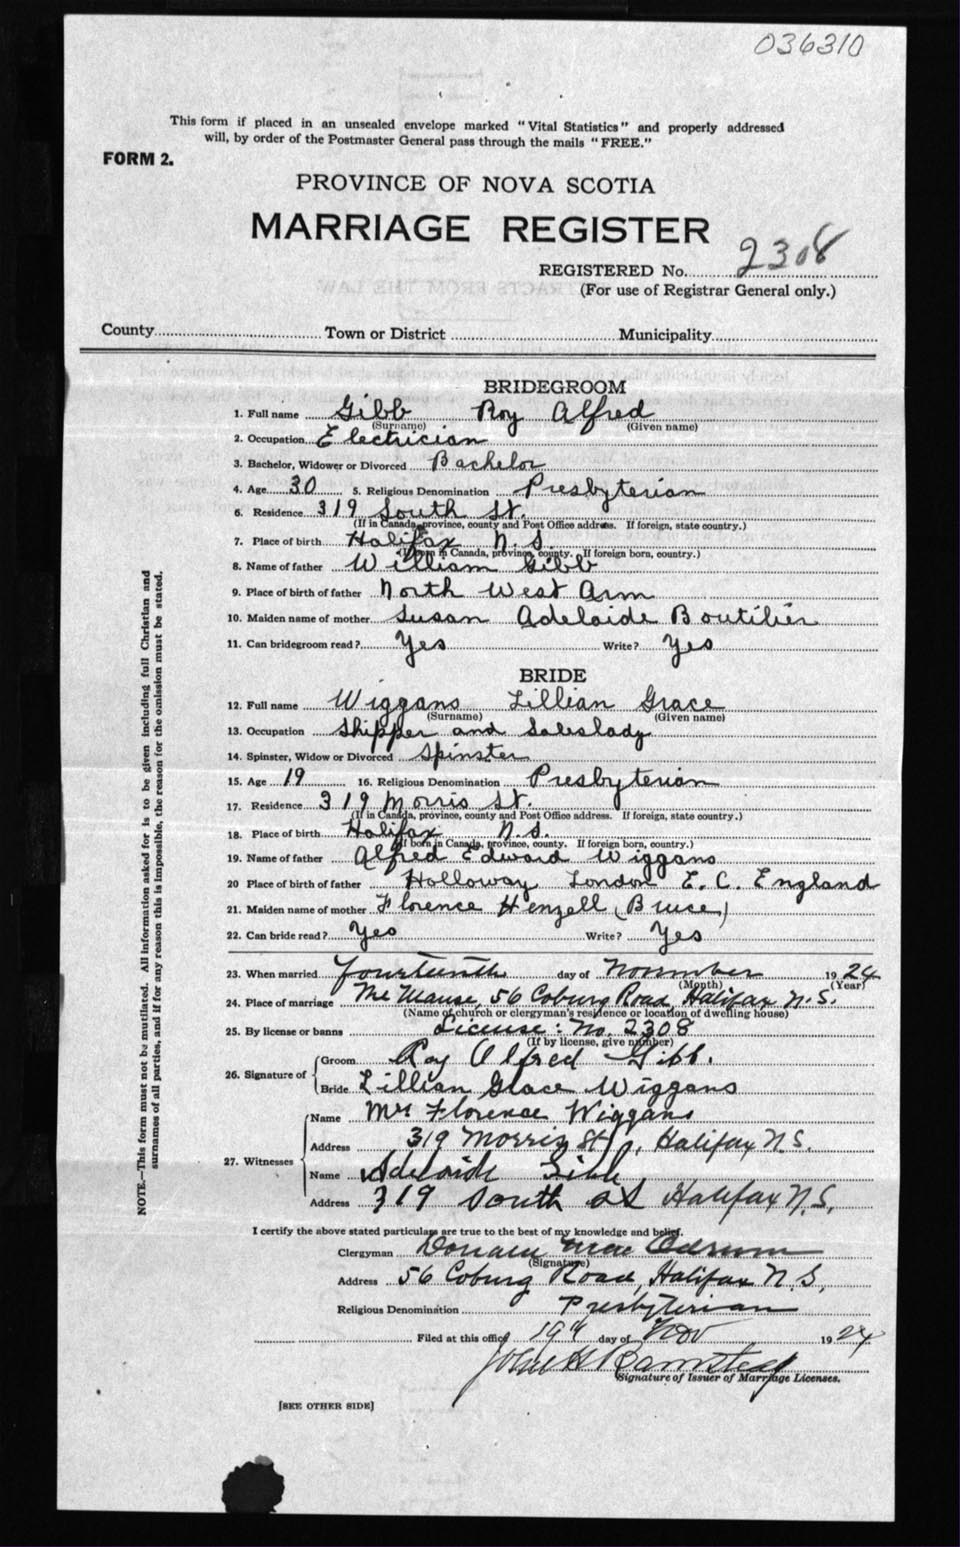 036310
This form if placed in an unsealed envelope marked "Vital Statistics" and properly addressed
will, by order of the Postmaster General pass through the mails "FREE."
FORM 2.
PROVINCE OF NOVA SCOTIA
MARRIAGE REGISTER
REGISTERED No. 2308
(For use of Registrar General only.)
County Town or District Municipality
BRIDEGROOM
1. Full name Gibb Roy Alfred
(Surname) (Given name)
2. Occupation Electrician
3. Bachelor, Widower or Divorced Bachelor
4. Age 30 5. Religious Denomination Presbyterian
6. Residence 319 South St.
(If in Canada, province, county and Post Office address. If foreign, state country.)
7. Place of birth Halifax N. S.
(If born in Canada, province, county. If foreign born, country.)
8. Name of father William Gibb
9. Place of birth of father North West Arm
10. Maiden name of mother Susan Adelaide Boutilier
11. Can bridegroom read? Yes Write? Yes
BRIDE
12. Full name Wiggans Lillian Grace
(Surname) (Given name)
13. Occupation Shipper and Saleslady
14. Spinster, Widow or Divorced Spinster
15. Age 19 16. Religious Denomination Presbyterian
17. Residence 319 Morris St.
(If in Canada, province, county and Post Office address. If foreign, state country.)
18. Place of birth Halifax N.S.
(If born in Canada, province, county. If foreign born, country.)
19. Name of father Alfred Edward Wiggans
20 Place of birth of father Holloway London E. C. England
21. Maiden name of mother Florence Henzell (Bruce)
22. Can bride read? Yes Write? Yes
23. When married fourteenth day of November 1924
(Month) (Year)
24. Place of marriage The Manse, 56 Coburg Road, Halifax N.S.
(Name of church or clergyman's residence or location of dwelling house)
25. By license or banns License: No. 2308
(If by license, give number)
26. Signature of Groom Roy Alfred Gibb.
Bride Lillian Grace Wiggans
27. Witnesses Name Mrs Florence Wiggans
Address 319 Morris St, Halifax N.S.
Name Adelaide Gibb
Address 319 South St Halifax N.S.
I certify the above stated particulars are true to the best of my knowledge and belief.
Clergyman Donald Mac Odrum
(Signature)
Address 56 Coburg Road, Halifax N.S,
Religious Denomination Presbyterian
Filed at this office 19 day of Nov 1924
John H Barnstead
Signature of Issuer of Marriage Licenses.
[SEE OTHER SIDE]
NOTE.—This form must not be mutilated. All information asked for is to be given including full Christian and
surnames of all parties, and if for any reason this is impossible, the reason for the omission must be stated.